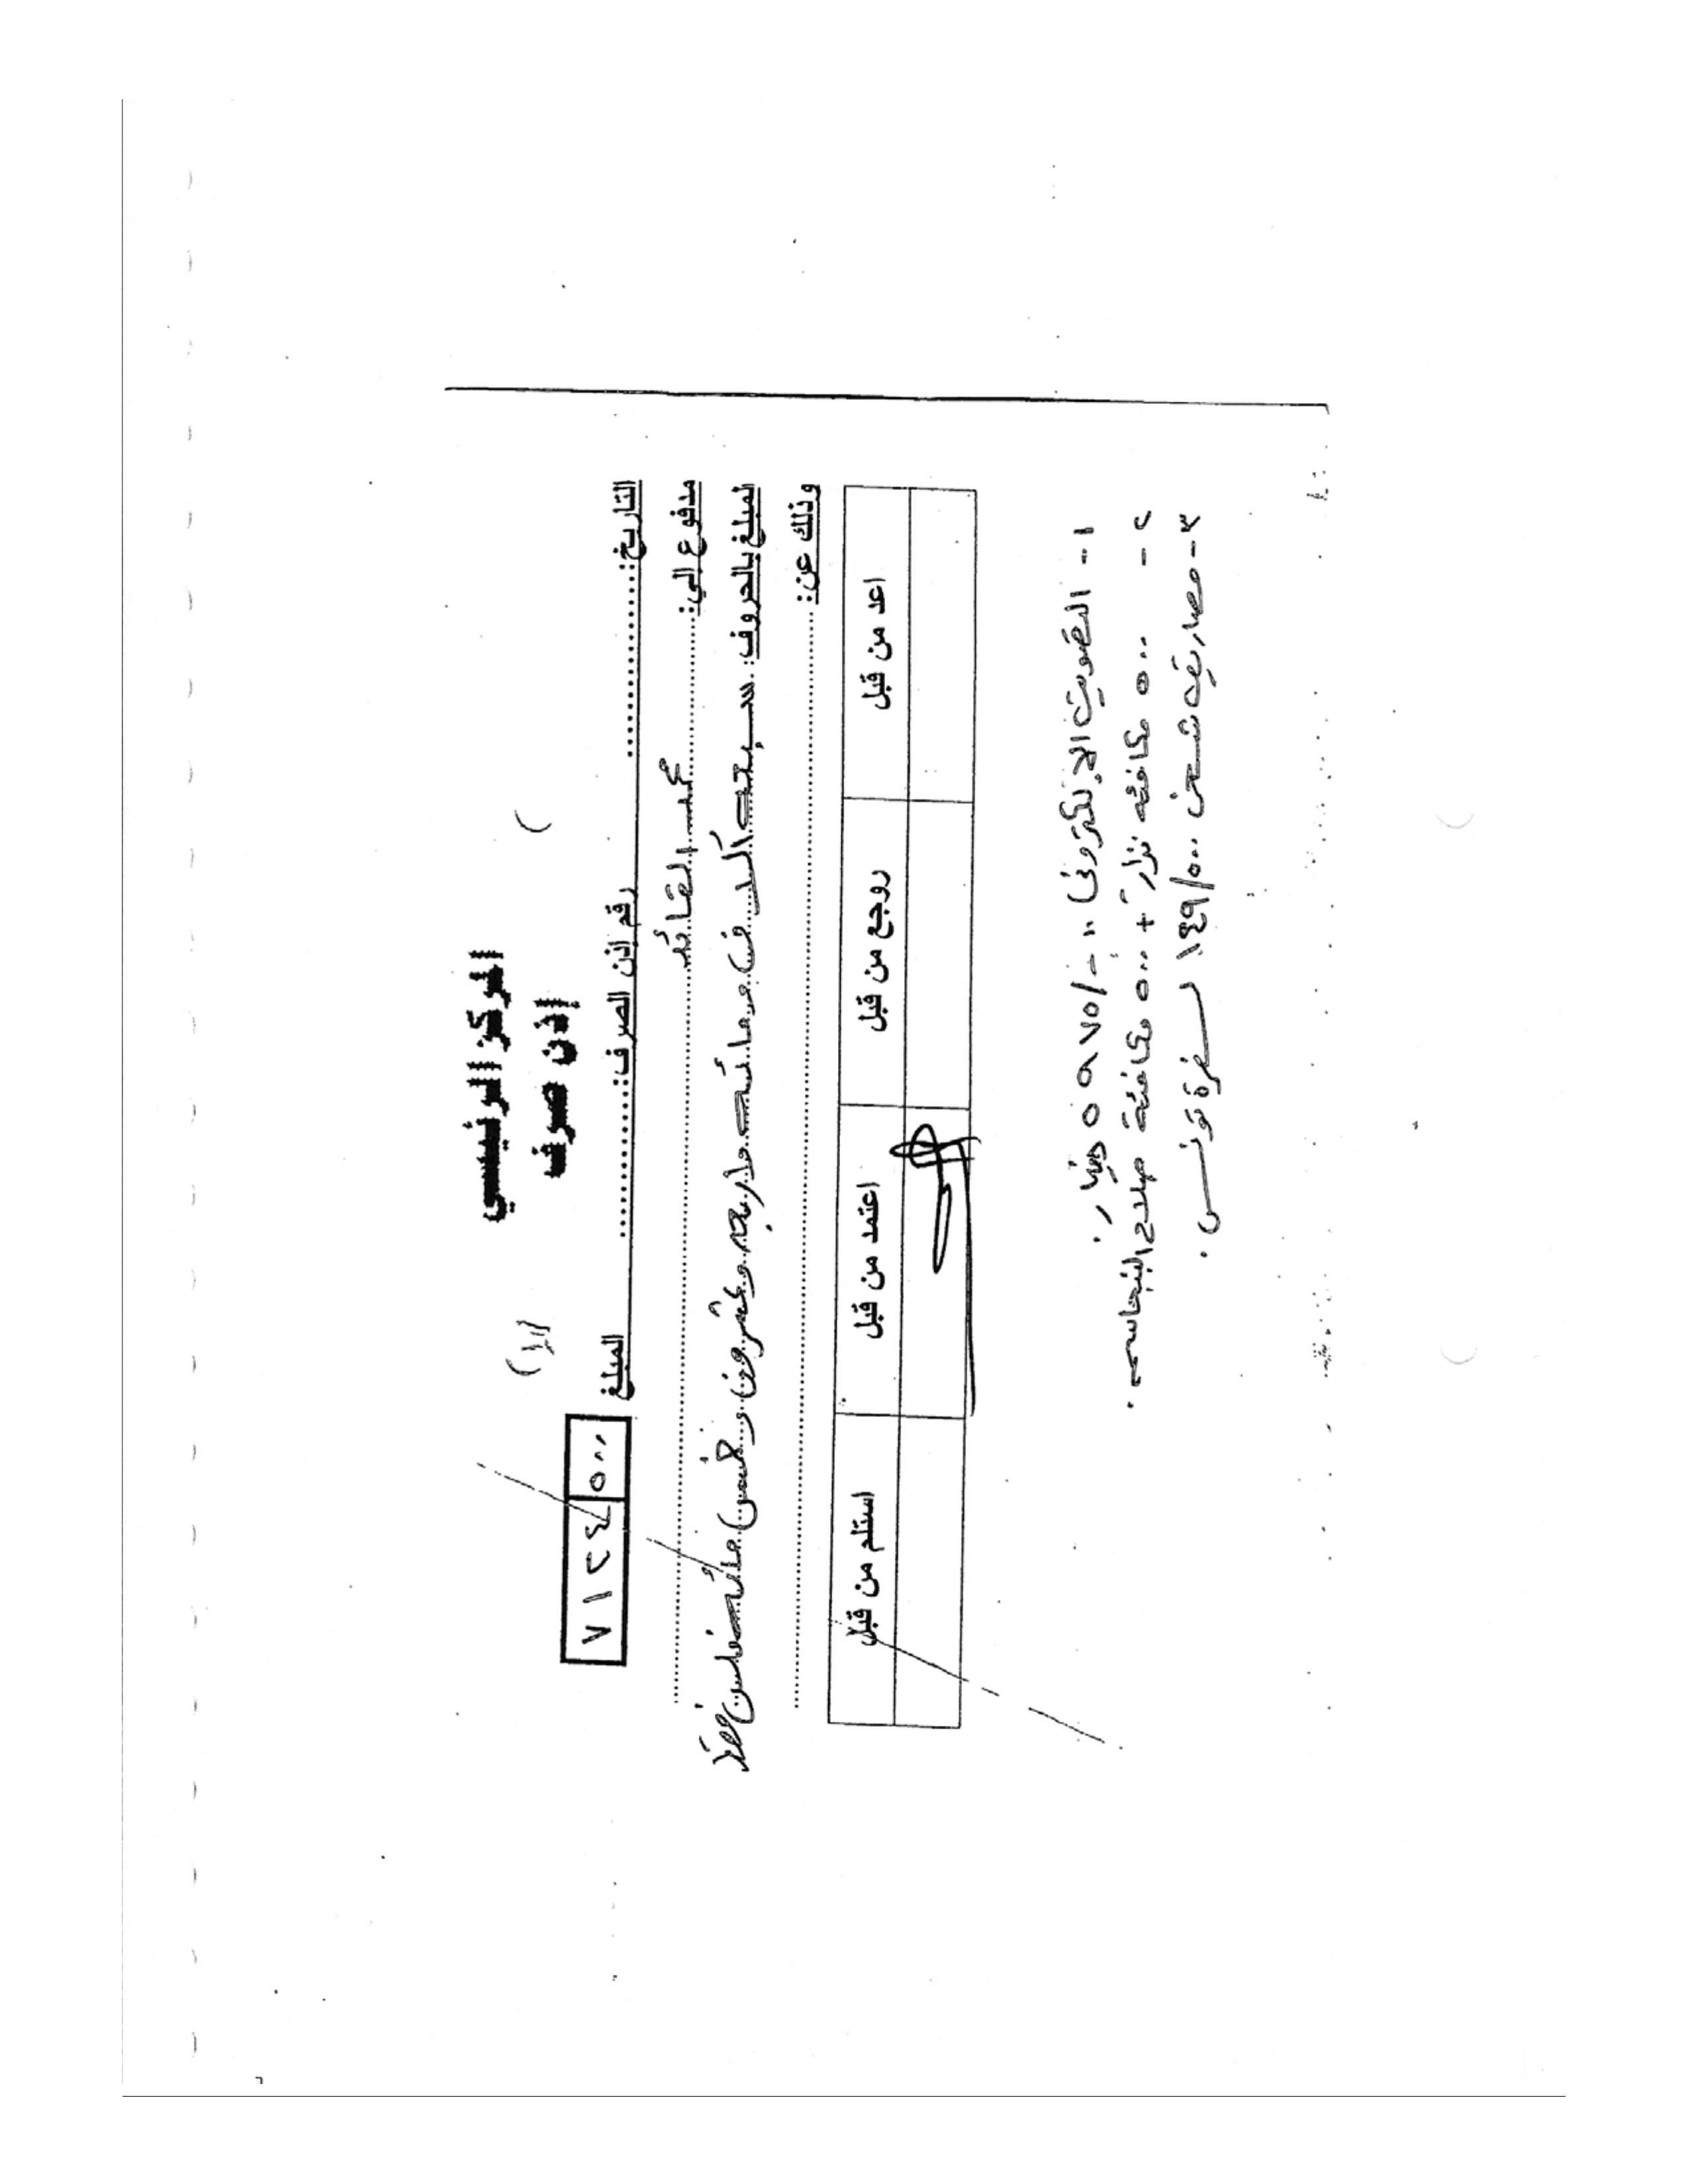 المركز الرئيسي
إذن صرف
التاريخ: رقم إذن الصرف: المبلغ ٧١٢٤ ٥٠٠
مدفوع إلي: القائد
المبلغ بالحروف: سبعة آلاف ومائة وأربعة وعشرون وخمس مائة فلس فقط
وذلك عن:
اعد من قبل روجع من قبل اعتمد من قبل استلم من قبل
١- التصويت الإلكتروني ٥٩٧٥/- دينار.
٢- ٥٠٠ مكافئة نزار + ٥٠٠ مكافئة صلاح
٣- مصاريف شحن ١٤٩/٥٠٠ سفرة تونس.